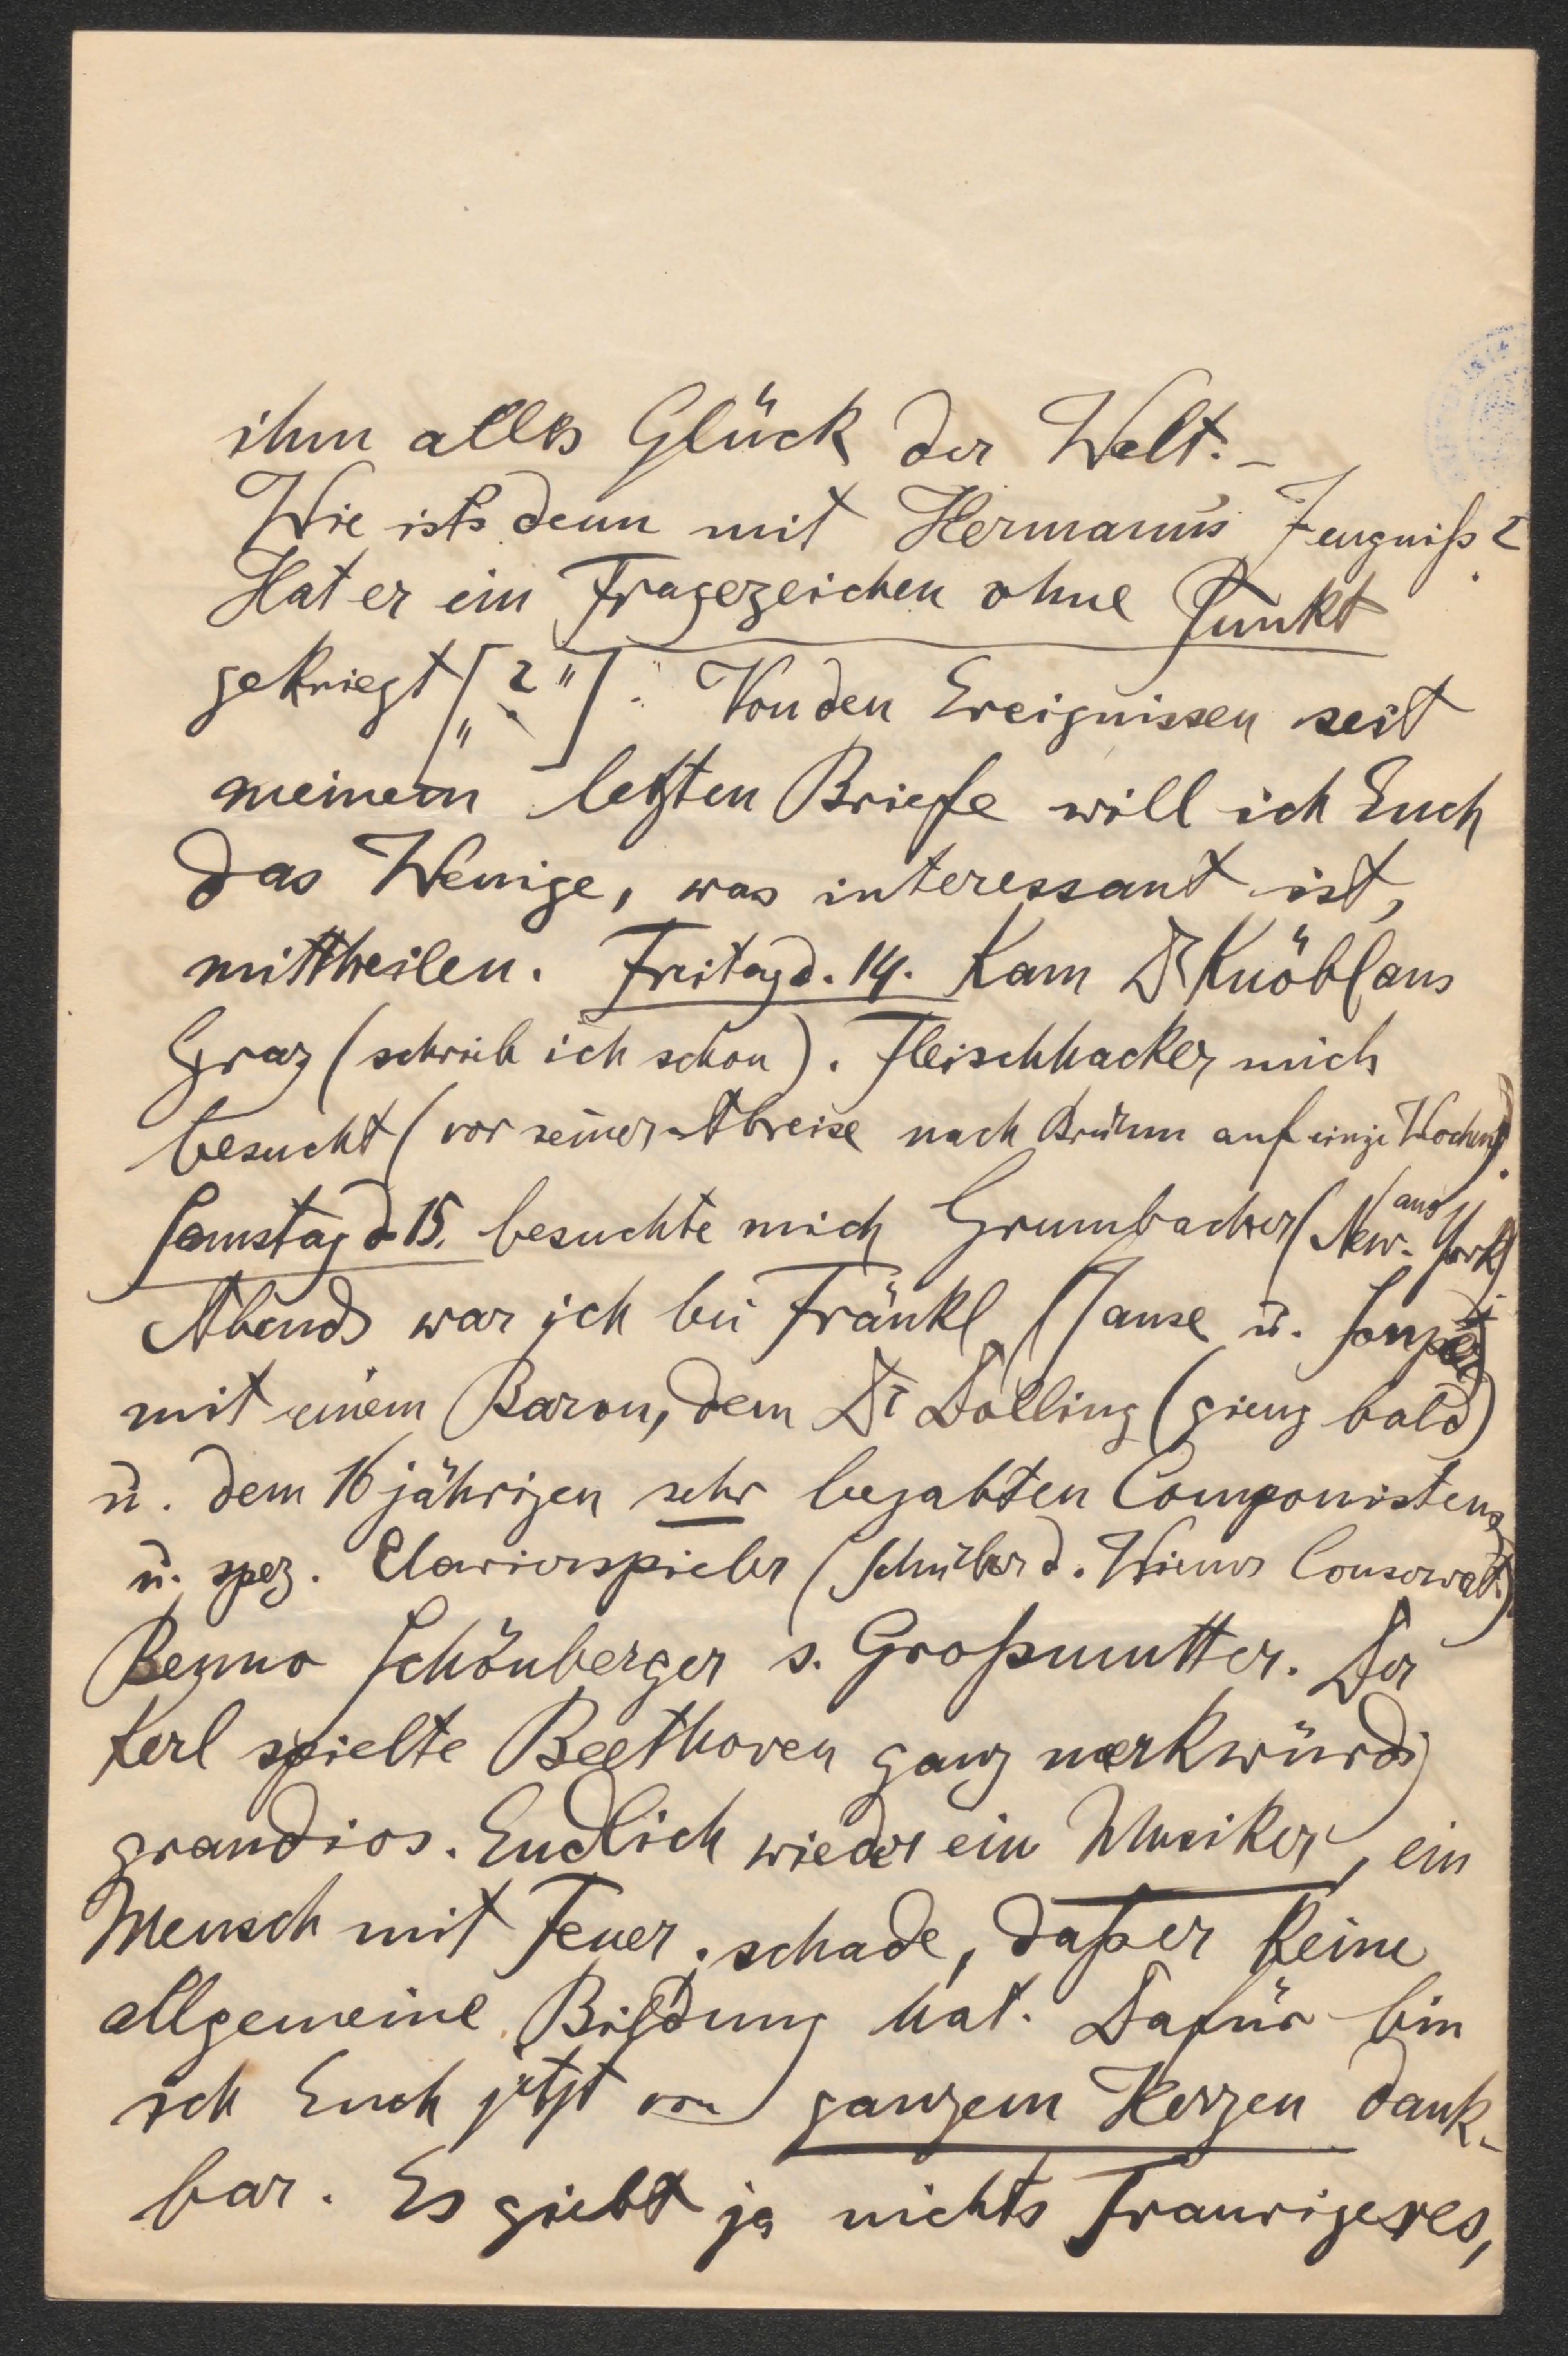 ihm alles Glück der Welt. –
Wie ists denn mit Hermann's Zeugniß?
Hat er ein Fragezeichen ohne Punkt
gekriegt [„?"]. Von den Ereignissen seit
meinem letzten Briefe will ich Euch
das Wenige, was interessant ist,
mittheilen. Freitag d. 14. kam Dr Knöbl aus
Graz (schrieb ich schon). Fleischhacker mich
besucht (vor seiner Abreise nach Brünn auf einige Wochen).
Samstag d 15. besuchte mich Grumbacher (aus New-York)
Abends war ich bei Fränkl (Jause u.
mit einem Baron, dem Dr Dolling (gieng bald)
u. dem 16 jährigen sehr begabten Componisten
u. spez. Clavierspieler (Schüler d. Wiener Conservat.)
Benno Schönberger s. Großmutter. Der
Kerl spielte Beethoven ganz merkwürdig
grandios. Endlich wieder ein Musiker, ein
Mensch mit Feuer. schade, daß er keine
allgemeine Bildung hat. Dafür bin
ich Euch jetzt von ganzem Herzen dank-
bar. Es giebt ja nichts Traurigeres,